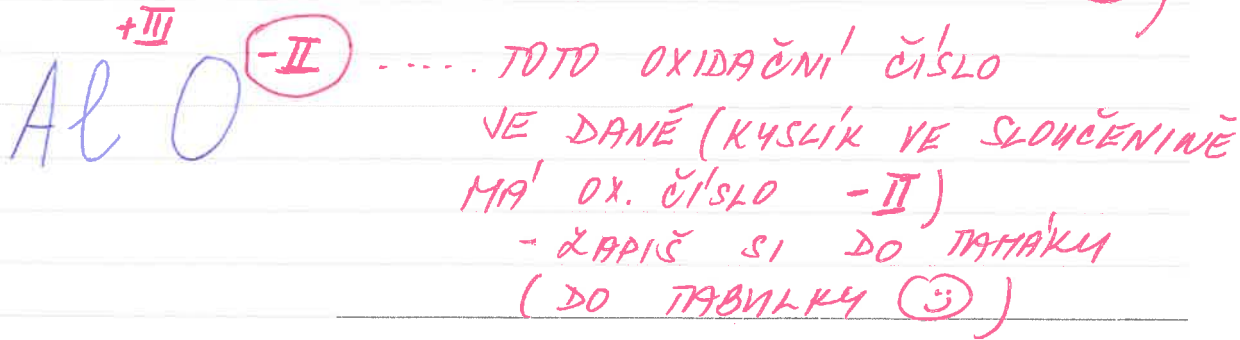 +III
Al O -II ..... TOTO OXIDAČNÍ ČÍSLO
JE DANÉ (KYSLÍK VE SLOUČENINĚ
MÁ OX. ČÍSLO -II)
- ZAPIŠ SI DO TAHÁKU
(DO TABULKY ☺)